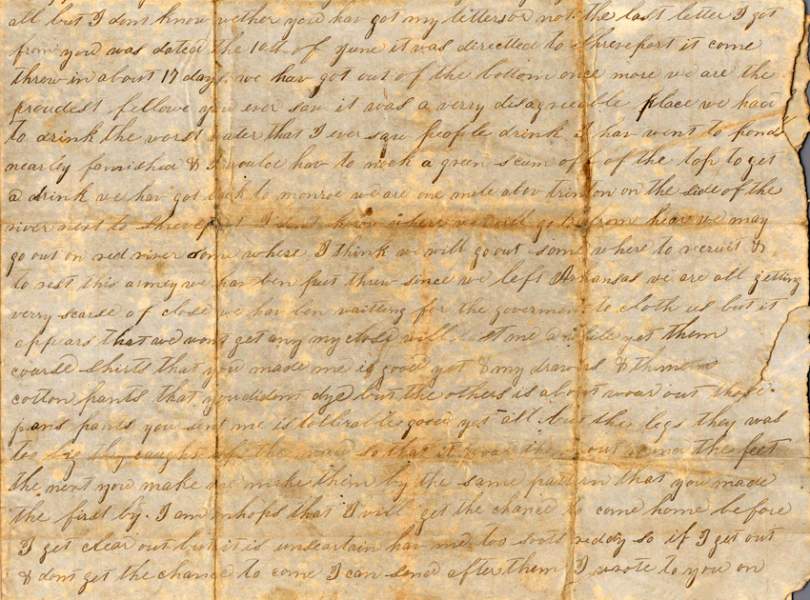 all but I dont know wether you hav got my letters or not the last letter I got
from you was dated the 10th of June it was directted to Shreveport it come
threw in about 17 days. we hav got out of the bottom once more we are the
proudest fellows you ever saw it was a verry disagreeable place we had
to drink the worst water that I ever saw people drink I hav went to ponds
nearley famished & I would hav to a green scum off of the top to get
a drink we hav got back to monroe we are one mile abov trenton on the side of the
river next to Shreveport I dont know where we will go to from hear we may
go out on red river some where I think we will go out some where to recruit &
to rest this armey we hav ben put threw since we left Arkansas we are all getting
verry scarse of close we hav ben waitting for the goverment to cloth us but it
appears that we wont get any my close will me a while yet them
coarse shirts that you made me is good yet & my drawers & them
cotton pants that you didont dye but the others is about woar out those
jeans pants you sent me is tollerable good yet all but the legs they was
too big they caught the mud so that it woar them out the feet
the next you make me make them by the same pattern that you made
the first by. I am inhops that I will get the chance to come home before
I get clear out but it is unsertain hav me too soots reddy so if I get out
& dont get the chance to come I can send after them I wrote to you on